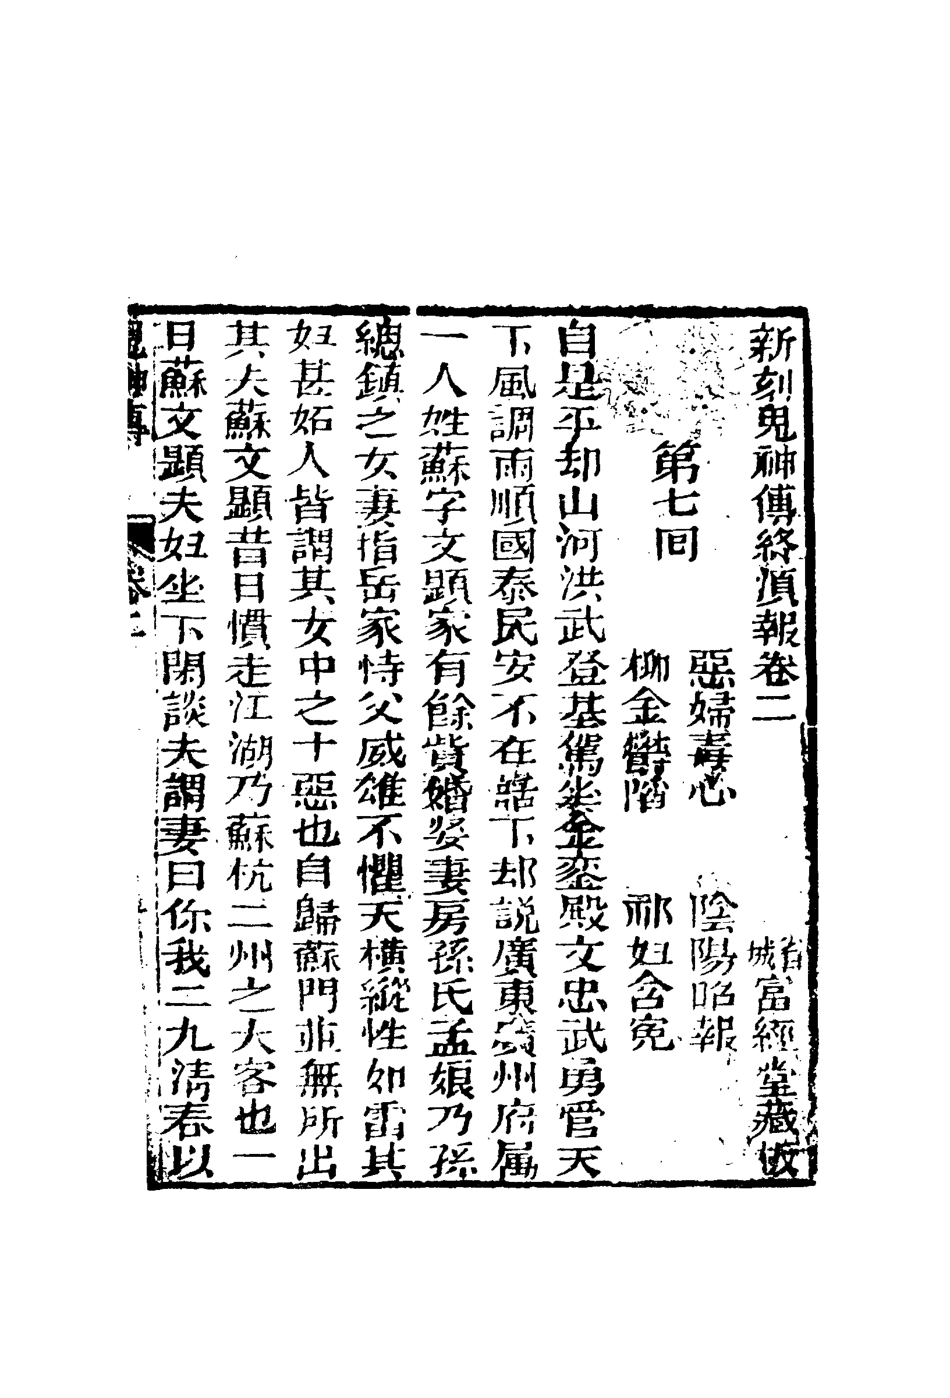 新刻鬼神傳終湏報卷二
省城富經堂藏板
第七回
惡婦毒心 陰陽昭報
柳金鬱陷 祁妇含寃
自是平却山河洪武登基駕坐金鑾殿文忠武勇管天
下風調雨順國泰民安不在話下却説廣東廣州府属
一人姓蘇字文題家有餘貲婚娶妻房孫氏孟娘乃孫
總鎮之女妻指岳家恃父威雄不懼天横縱性如雷其
妇甚妬人皆謂其女中之十惡也自歸蘇門並無所出
其夫蘇文顕昔日慣走江湖乃蘇杭二州之大客也一
日蘇文題夫妇坐下閑談夫謂妻曰你我二九清春以
鬼神傳
卷二